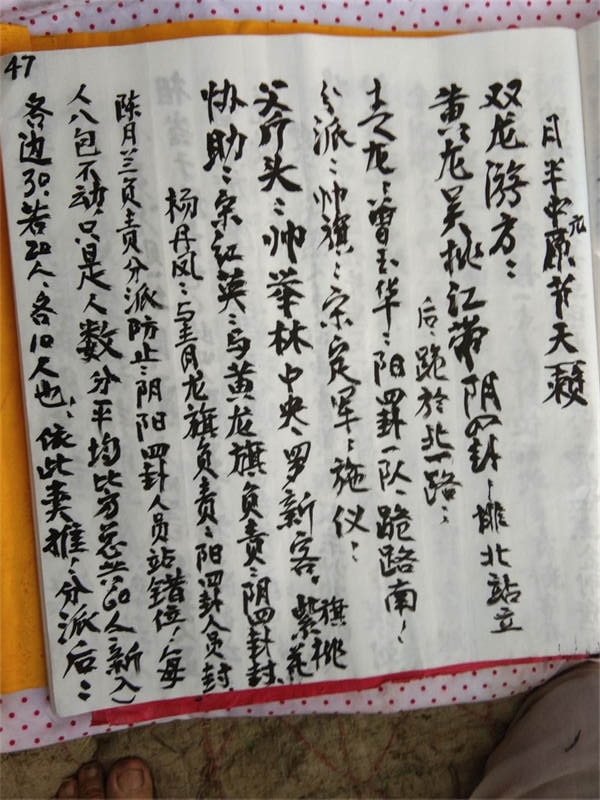 47
月半中康元节天颡
双龙游方：
黄龙吴桃江带阴四封，排北站立
后：跪於北一路：
青龙：曾玉华：阳四封一队、跪路南，
分派：帅旗：宗定军：施仪：
父厅头：帅举林中央罗新客。旗桃紫花
协助：宗红英：与黄龙旗负责：阴四封封
杨丹凤：与青龙旗负责：阳四封人员封
陈月兰负责分派防止：阴阳四封人员站错位，每
人八包不动，只是人数分平均比方总共60人（新入）
各边30，若20人，各10人也，依此类推，分派后：